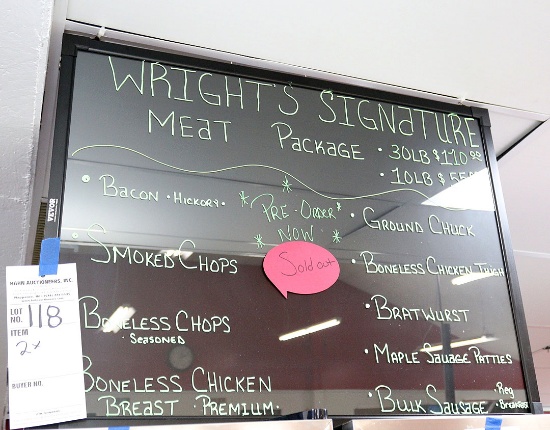 WRIGHT'S SIGNATURE
MEAT Package • 30LB $170.99
• 10LB $
• BACON • HICKORY •
* PRE-ORDER *
* NOW *
• GROUND CHUCK
• SMOKED CHOPS
Sold out
• BONELESS CHICKEN THIGH
BONELESS CHOPS
• SEASONED
• BRATWURST
• MAPLE SAUSAGE PATTIES
BONELESS CHICKEN
BREAST • PREMIUM •
• BULK SAUSAGE • Reg
• Breakfast
VEVOR
HAHN AUCTIONEERS, INC.
LOT
NO. 118
ITEM
2x
BUYER NO.